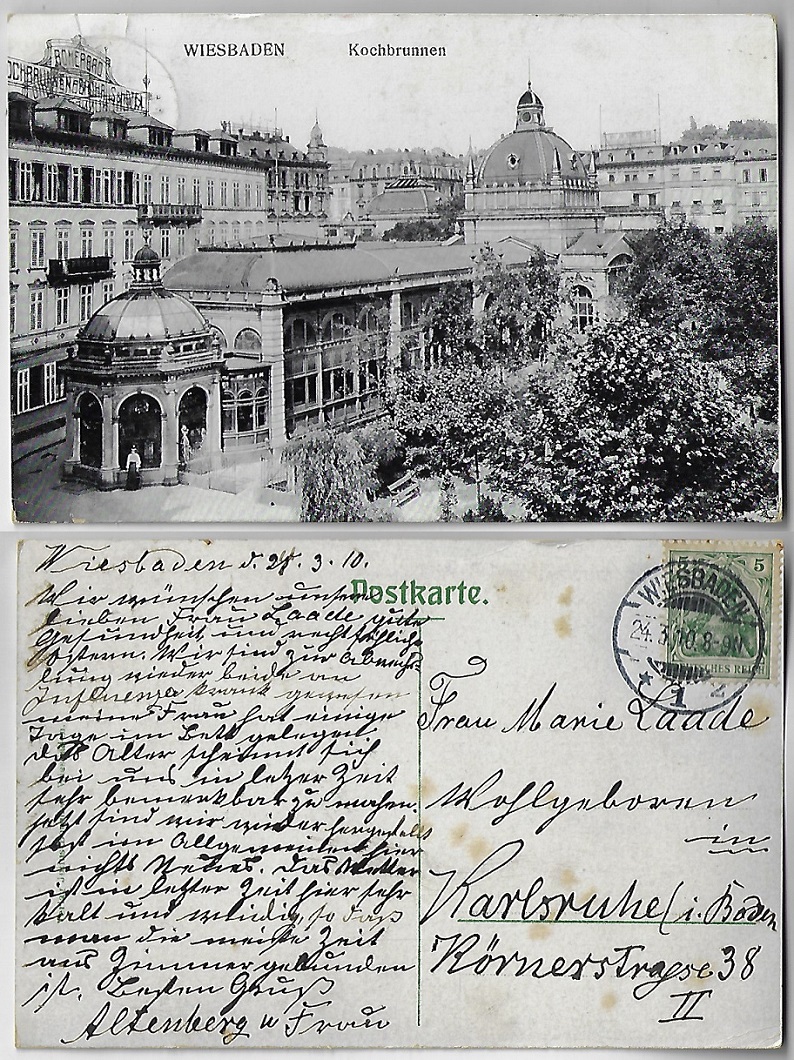 WIESBADEN Kochbrunnen
RÖMERBAD
Wiesbaden d. 24. 3. 10.
Postkarte.
Wir wünschen unsere
lieben Frau Laade gute
Gesundheit und recht fröhliche
Ostern. Wir sind zur Abwechs-
lung wieder beide an
Influenza krank gewesen
meine Frau hat einige
Tage im Bett gelegen
das Alter scheinnt sich
bei uns in letzer Zeit
sehr bemerkbar zu machen.
jetzt sind wir wieder hergestellt
sonst im Allgemeinen hier
nichts Neues. Das Wetter
ist in letzter Zeit hier sehr
kalt und windig, so daß
man die meiste Zeit
ans Zimmer gebunden
ist. Besten Gruß
Altenberg u Frau
5
DEUTSCHES REICH
WIESBADEN
24.3.10.8-9N
* 1 2
Frau Marie Laade
Wohlgeboren
in
Karlsruhe (i. Baden
Körnerstrasse 38
II